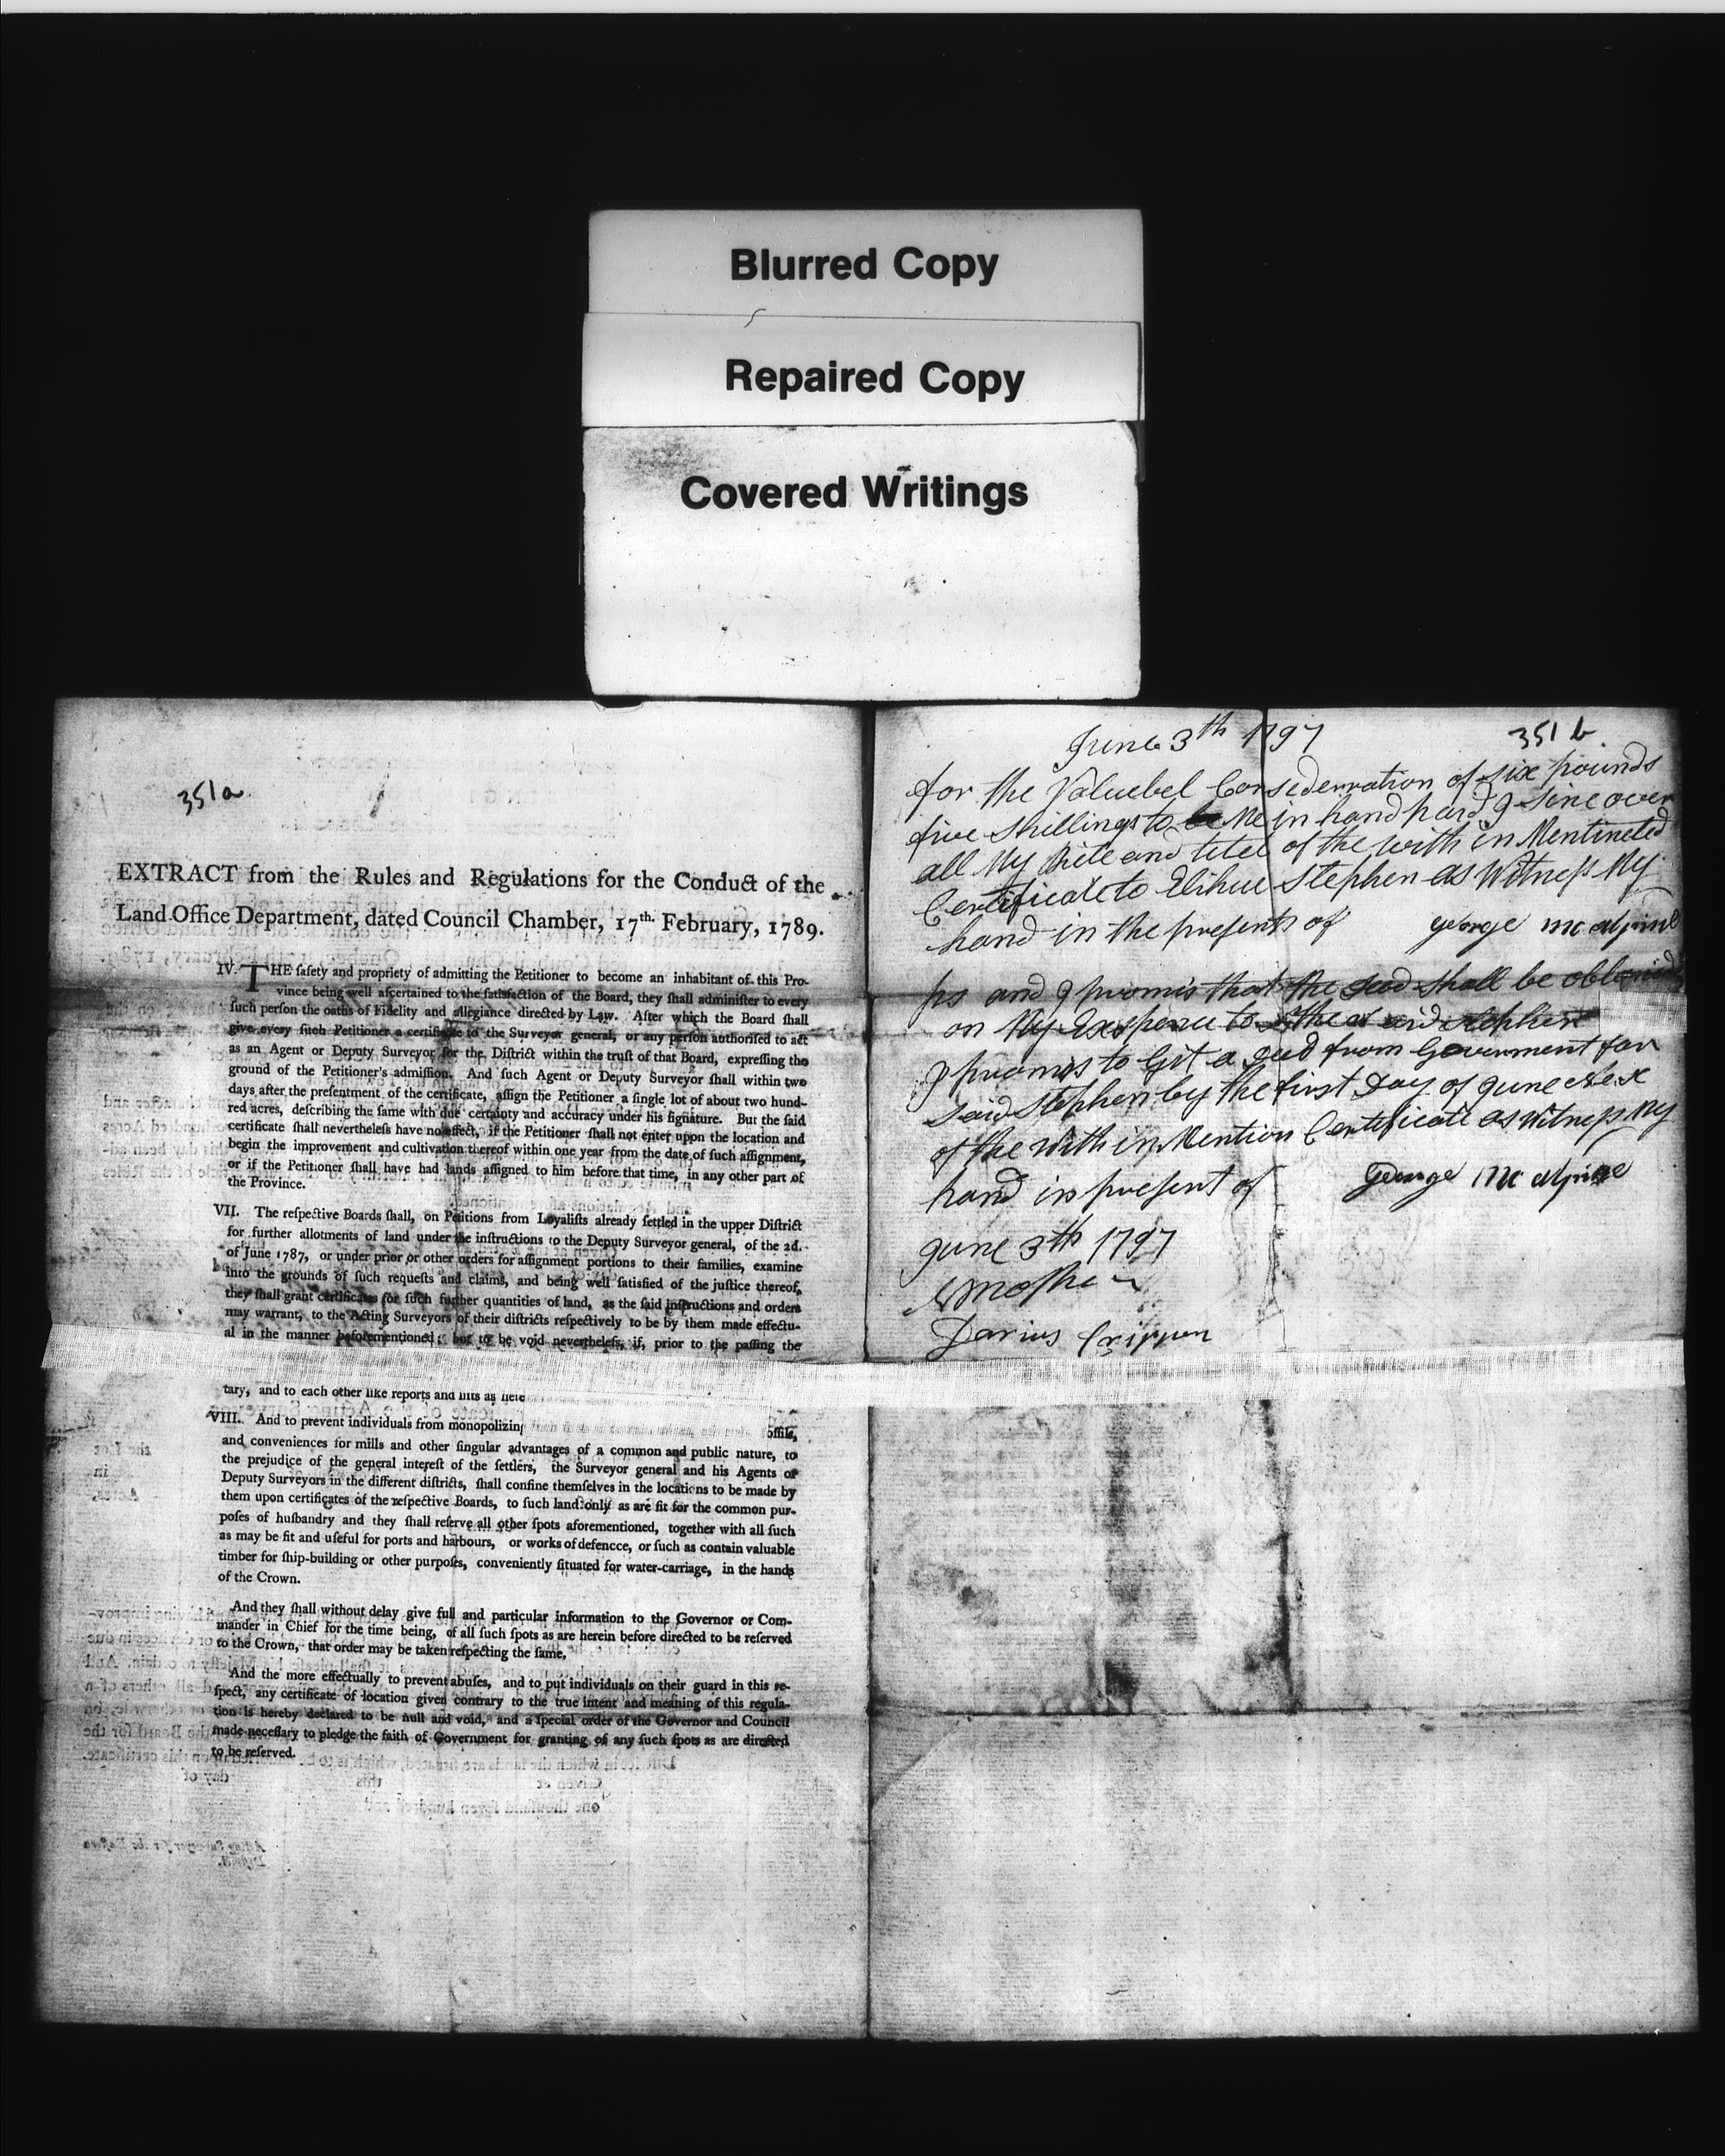 Blurred Copy
Repaired Copy
Covered Writings
351a
EXTRACT from the Rules and Regulations for the Conduct of the
Land Office Department, dated Council Chamber, 17th. February, 1789.
IV. THE ſafety and propriety of admitting the Petitioner to become an inhabitant of this Pro-
vince being well aſcertained to the ſatisfaction of the Board, they ſhall adminiſter to every
ſuch perſon the oaths of Fidelity and allegiance directed by Law. After which the Board ſhall
give every ſuch Petitioner a certificate to the Surveyor general, or any perſon authoriſed to act
as an Agent or Deputy Surveyor for the Diſtrict within the truſt of that Board, expreſſing the
ground of the Petitioner's admiſſion. And ſuch Agent or Deputy Surveyor ſhall within two
days after the preſentment of the certificate, aſſign the Petitioner a ſingle lot of about two hund-
red acres, deſcribing the ſame with due certainty and accuracy under his ſignature. But the ſaid
certificate ſhall nevertheleſs have no effect, if the Petitioner ſhall not enter upon the location and
begin the improvement and cultivation thereof within one year from the date of ſuch aſſignment,
or if the Petitioner ſhall have had lands aſſigned to him before that time, in any other part of
the Province.
VII. The reſpective Boards ſhall, on Petitions from Loyaliſts already ſettled in the upper Diſtrict
for further allotments of land under the inſtructions to the Deputy Surveyor general, of the 2d.
of June 1787, or under prior or other orders for aſſignment portions to their families, examine
into the grounds of ſuch requeſts and claims, and being well ſatisfied of the juſtice thereof,
they ſhall grant certificates for ſuch further quantities of land, as the ſaid inſtructions and orders
may warrant, to the Acting Surveyors of their diſtricts reſpectively to be by them made effectu-
al in the manner beforementioned; but to be void nevertheleſs, if, prior to the paſſing the
tary, and to each other like reports and liſts as here
VIII. And to prevent individuals from monopolizing
and conveniences for mills and other ſingular advantages of a common and public nature, to
the prejudice of the general intereſt of the ſettlers, the Surveyor general and his Agents or
Deputy Surveyors in the different diſtricts, ſhall confine themſelves in the locations to be made by
them upon certificates of the reſpective Boards, to ſuch land only as are fit for the common pur-
poſes of huſbandry and they ſhall reſerve all other ſpots aforementioned, together with all ſuch
as may be fit and uſeful for ports and harbours, or works of defencce, or ſuch as contain valuable
timber for ſhip-building or other purpoſes, conveniently ſituated for water-carriage, in the hands
of the Crown.
And they ſhall without delay give full and particular information to the Governor or Com-
mander in Chief for the time being, of all ſuch ſpots as are herein before directed to be reſerved
to the Crown, that order may be taken reſpecting the ſame.
And the more effectually to prevent abuſes, and to put individuals on their guard in this re-
ſpect, any certificate of location given contrary to the true intent and meaning of this regula-
tion is hereby declared to be null and void, and a ſpecial order of the Governor and Council
made neceſſary to pledge the faith of Government for granting of any ſuch ſpots as are directed
to be reſerved.
351 b
June 3th 1797
for the Valuebel Considerration of six pounds
five Shillings to Me in hand paid I sine over
all My Rite and titel of the with in Mentineted
Certificate to Elihue Stephen as Witness My
hand in the presents of George mc alpine
ps and I promis that the deed shall be
on My Exspence to the said stephen
I promis to Git a deed from Government for
said Stephen by the first Day of June Next
of the with in Mention Certificate as Witness My
hand in present of George Mc alpine
June 3th 1797
Darius Crippen